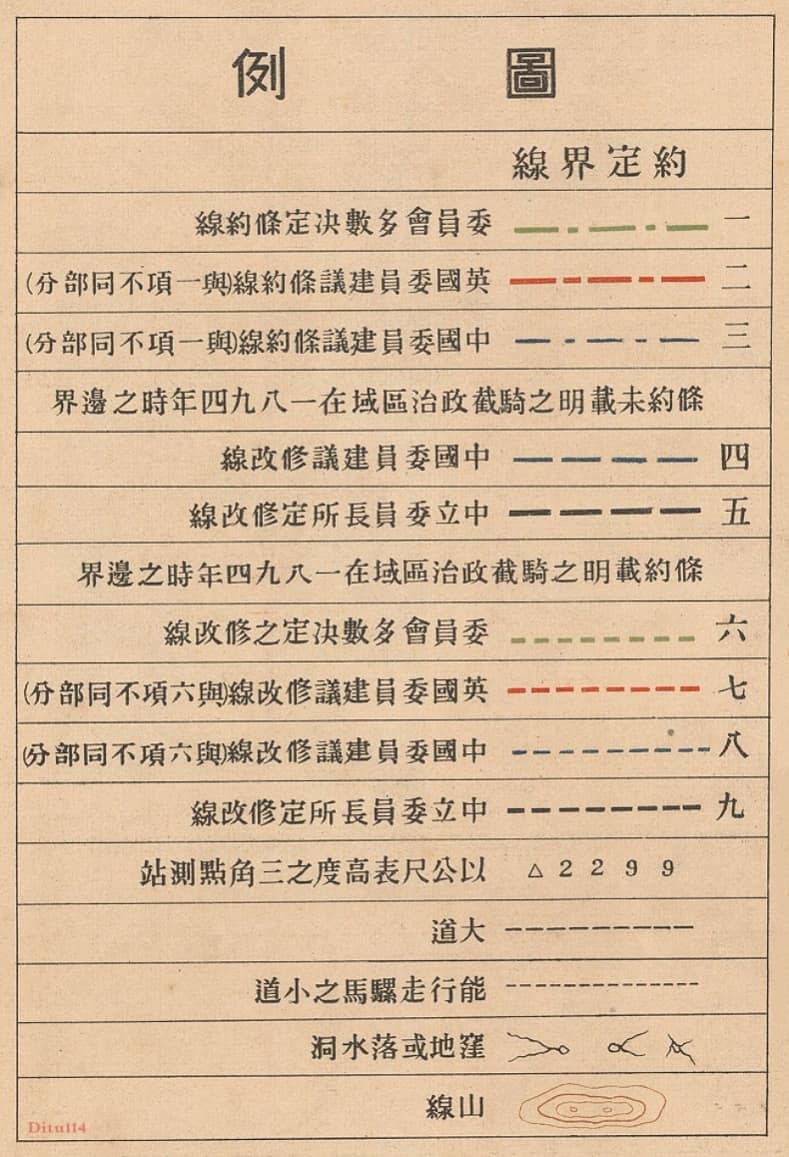 圖例
約定界線
一 委員會多數決定條約線
二 英國委員建議條約線(與一項不同部分)
三 中國委員建議條約線(與一項不同部分)
條約未載明之騎截政治區域在一八九四年時之邊界
四 中國委員建議修改線
五 中立委員長所定修改線
條約載明之騎截政治區域在一八九四年時之邊界
六 委員會多數決定之修改線
七 英國委員建議修改線(與六項不同部分)
八 中國委員建議修改線(與六項不同部分)
九 中立委員長所定修改線
△2299 以公尺表高度之三角點測站
大道
能行走騾馬之小道
窪地或落水洞
山線
Ditu114